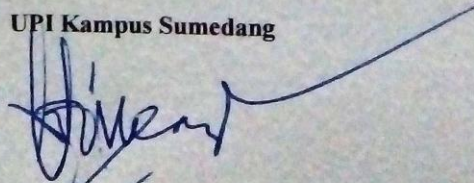 UPI Kampus Sumedang